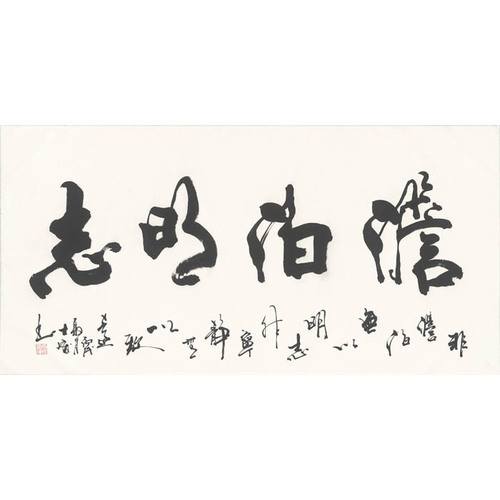 澹泊明志
非澹泊無以明志非寧靜无以致遠